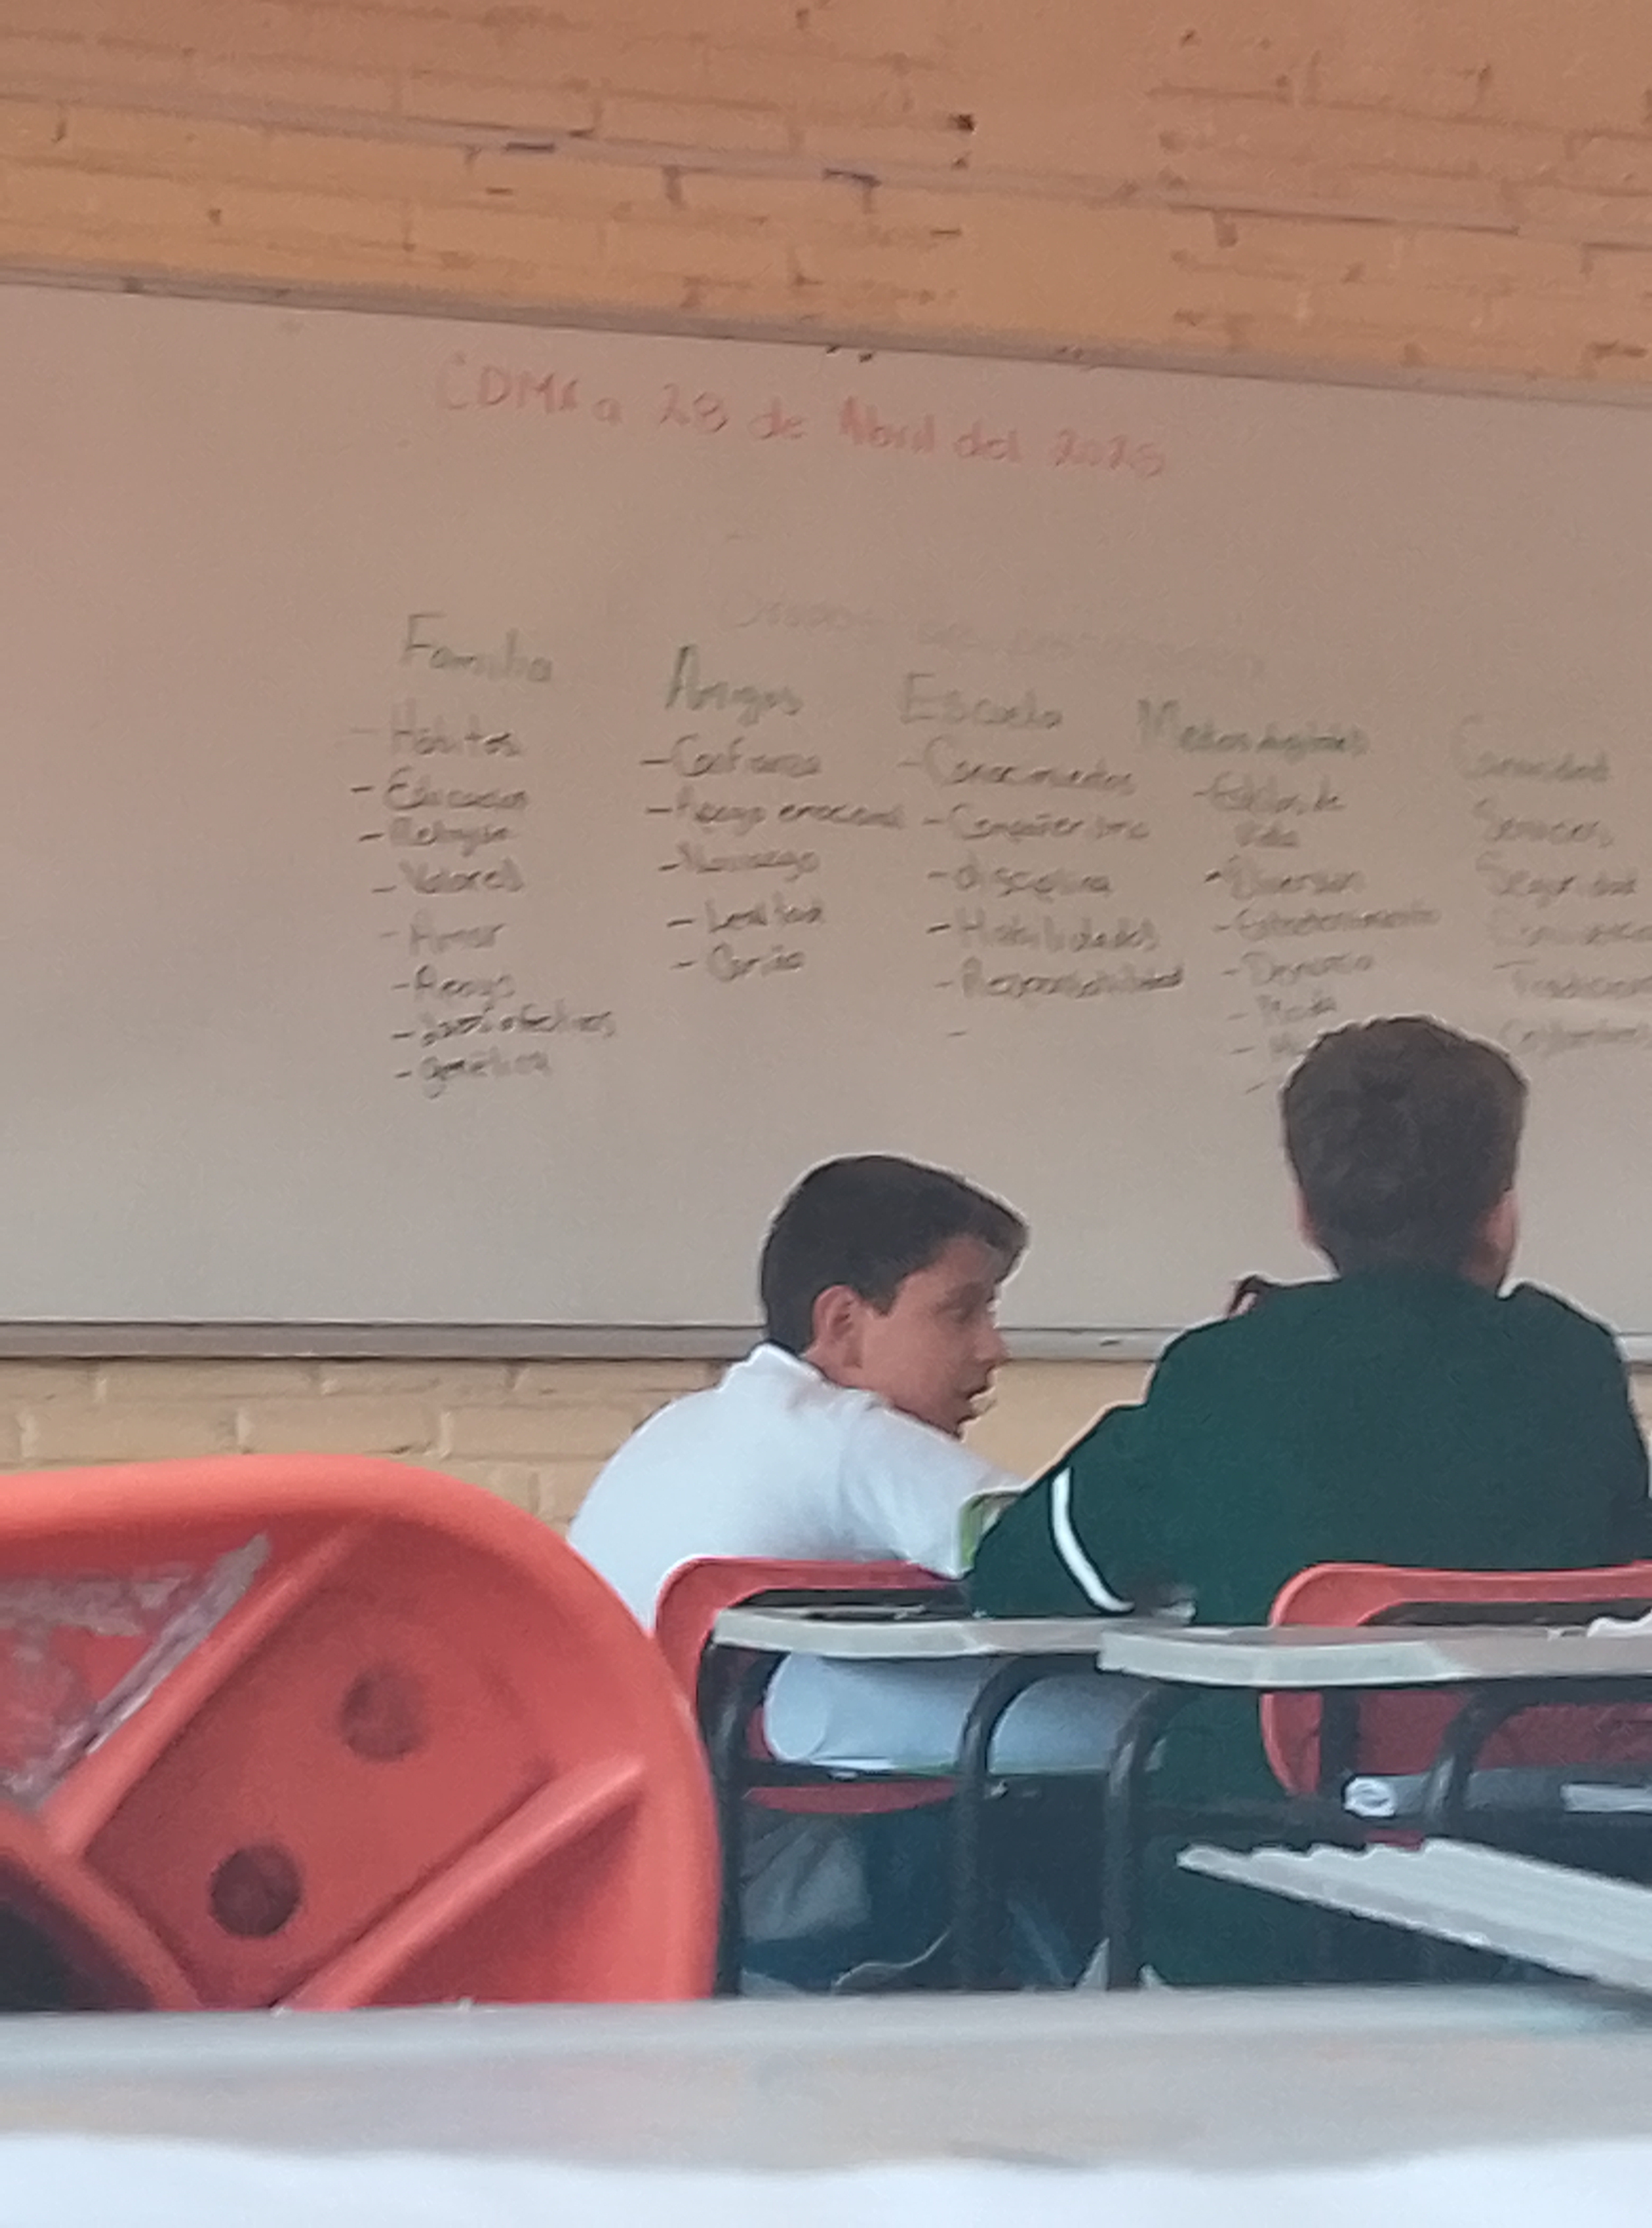 CDMX a 28 de Abril del 2025
Familia
- Hábitos
- Educación
- Religión
- Valores
- Amor
- Apoyo
- afectivos
- genética
Amigos
- Confianza
- Apoyo emocional
- Lealtad
- Cariño
Escuela
- Conocimientos
- Compañerismo
- disciplina
- Habilidades
- Responsabilidad
-
Medios digitales
- Estilos de
vida
- Diversion
- Entretenimiento
- Moda
Comunidad
Servicios
Seguridad